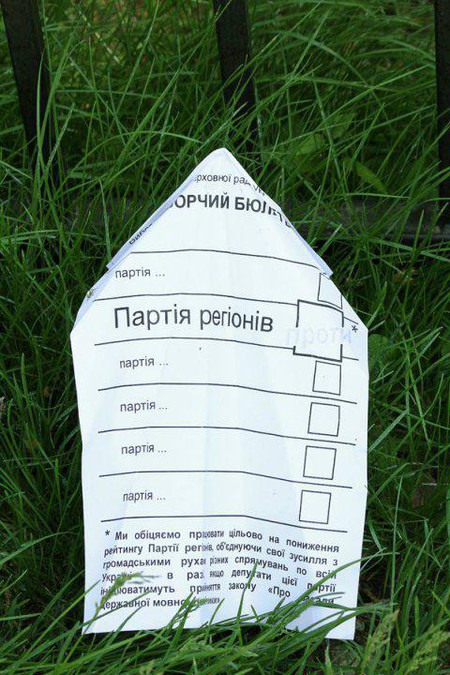 ерховної рад
ОРЧИЙ БЮЛЕТЕ
партія ...
Партія регіонів
*
партія ...
партія ...
партія ...
партія ...
* Ми обіцяємо працювати цільово на пониження
рейтингу Партії регіонів, об'єднуючи свої зусилля з
громадськими рухами різних спрямувань по всій
Україні, в разі якщо депутати цієї партії
ініціюватимуть прийняття закону «Про
державної мовної